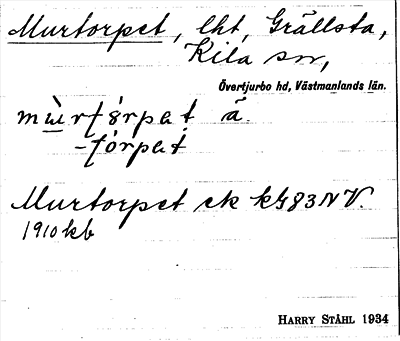 Murtorpet, lht, Grällsta,
Kila sn,
Övertjurbo hd, Västmanlands län.
ä.
Murtorpet ek kG83NV.
1910 kb
HARRY STÅHL 1934